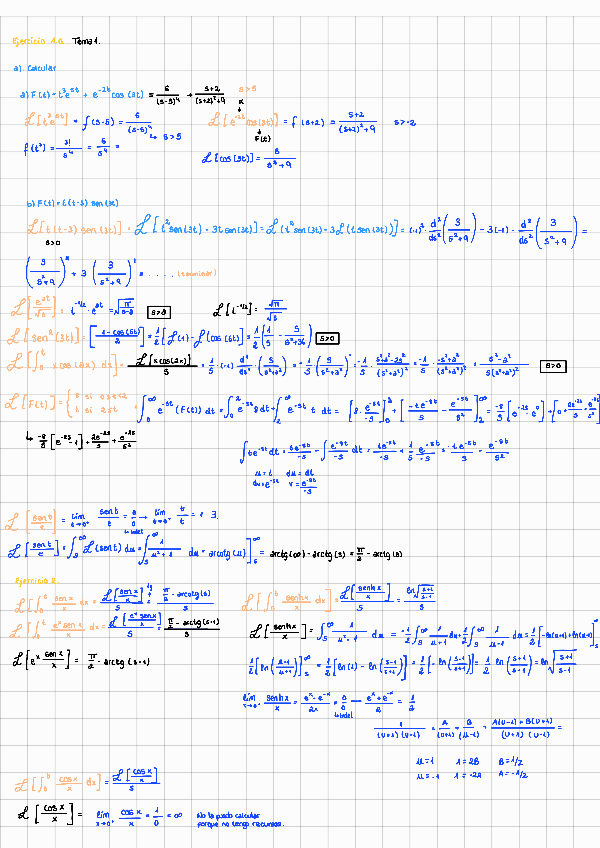 Ejercicio 1.a. Tema 1.
a). Calcular
a) F(t) = t³e^{5t} + e^{-2t} cos(3t) = 6/(s-5)⁴ + (s+2)/((s+2)²+9) s>5
ℒ[t³e^{5t}] = f(s-5) = 6/(s-5)⁴ → s>5
ℒ[e^{-2t}cos(3t)] = f(s+2) = (s+2)/((s+2)²+9) s>-2
F(t)
f(t³) = 3!/s⁴ = 6/s⁴ =
ℒ[cos(3t)] = s/(s²+9)
b) F(t) = t(t-3) sen(3t)
ℒ[t(t-3) sen(3t)] = ℒ[t² sen(3t) - 3t sen(3t)] = ℒ(t² sen(3t) - 3ℒ(t sen(3t))] = (-1)² d²/ds² (3/(s²+9)) - 3(-1) · d²/ds² (3/(s²+9)) =
s>0
(3/(s²+9))'' + 3 (3/(s²+9))' = .... (terminar)
ℒ[e^{3t}/√t] = t^{-1/2} · e^{3t} = √(π/(s-3)) s>3
ℒ[t^{-1/2}] = √π/√s
ℒ[sen²(3t)] = [(1-cos(6t))/2] = 1/2[ℒ(1) - ℒ(cos(6t)] = 1/2(1/s - s/(s²+36)) s>0
ℒ[∫₀ᵗ x cos(ax) dx] = ℒ[x cos(ax)]/s = 1/s · (-1) · d'/ds (s/(s²+a²)) = -1/s (s/(s²+a²))' = -1/s · (s²+a²-2s²)/(s²+a²)² = -1/s · (-s²+a²)/(s²+a²)² = (s²-a²)/(s(s²+a²)²) s>0
ℒ[F(t)] = { 8 si 0≤t<2
t si 2≤t
= ∫₀^∞ e^{-st}(F(t)) dt = ∫₀² e^{-st} 8dt + ∫₂^∞ e^{-st} t dt = [8 · e^{-st}/-s]₀² + [-te^{-st}/s - e^{-st}/s²]₂^∞ = -8/s [e^{-2s} - e⁰] + [0 + 2e^{-2s}/s + e^{-2s}/s²
↳ -8/s [e^{-2s} - 1] + 2e^{-2s}/s + e^{-2s}/s²
∫te^{-st}dt = te^{-st}/-s - ∫e^{-st}/-s dt = te^{-st}/-s + 1/s · e^{-st}/-s = -te^{-st}/s - e^{-st}/s²
u=t du=dt
dv=e^{-st} v=e^{-st}/-s
ℒ[sen t/t] = lim t→0⁺ sen t/t = 0/0 → lim t→0⁺ t/t = 1 ∃.
indet
ℒ[sen t/t] = ∫ₛ^∞ ℒ(sen t) du = ∫ₛ^∞ 1/(u²+1) du = arctg(u)]ₛ^∞ = arctg(∞) - arctg(s) = π/2 - arctg(s)
Ejercicio 2.
ℒ[∫₀ᵗ sen x/x dx] = ℒ[sen x/x]/s = (π/2 - arctg(s))/s
ℒ[∫₀ᵗ senh x/x dx] = ℒ[senh x/x]/s = ln√((s+1)/(s-1))/s
ℒ[∫₀ᵗ eˣ sen x/x dx] = ℒ[eˣ sen x/x]/s = (π/2 - arctg(s-1))/s
ℒ[senh x/x] = ∫ₛ^∞ 1/(u²-1) du = -1/2 ∫ₛ^∞ 1/(u+1) du + 1/2 ∫ₛ^∞ 1/(u-1) du = 1/2[-ln(u+1)+ln(u-1)]ₛ^∞
ℒ[eˣ sen x/x] = π/2 - arctg(s-1)
1/2[ln((u-1)/(u+1))]ₛ^∞ = 1/2[ln(1) - ln((s-1)/(s+1))] = 1/2[-ln((s-1)/(s+1))] = 1/2 ln((s+1)/(s-1)) = ln√((s+1)/(s-1))
lim x→0⁺ senh x/x = (eˣ-e⁻ˣ)/2x = 0/0 — (eˣ+e⁻ˣ)/2 = 1/2
indet
1/((u+1)(u-1)) = A/(u+1) + B/(u-1) = (A(u-1)+B(u+1))/((u+1)(u-1)) =
u=1 1=2B B=1/2
u=-1 1=-2A A=-1/2
ℒ[∫₀ᵗ cos x/x dx] = ℒ[cos x/x]/s
ℒ[cos x/x] = lim x→0⁺ cos x/x = 1/0 = ∞ No lo puedo calcular
porque no tengo recursos.